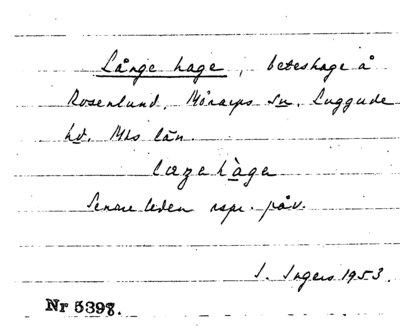 Långe hage, beteshage å
Rosenlund, Mörarps sn. Luggude
hd. Mlo län.
Senare leden rspr. påv.
I. Ingers 1953.
Nr 5398.